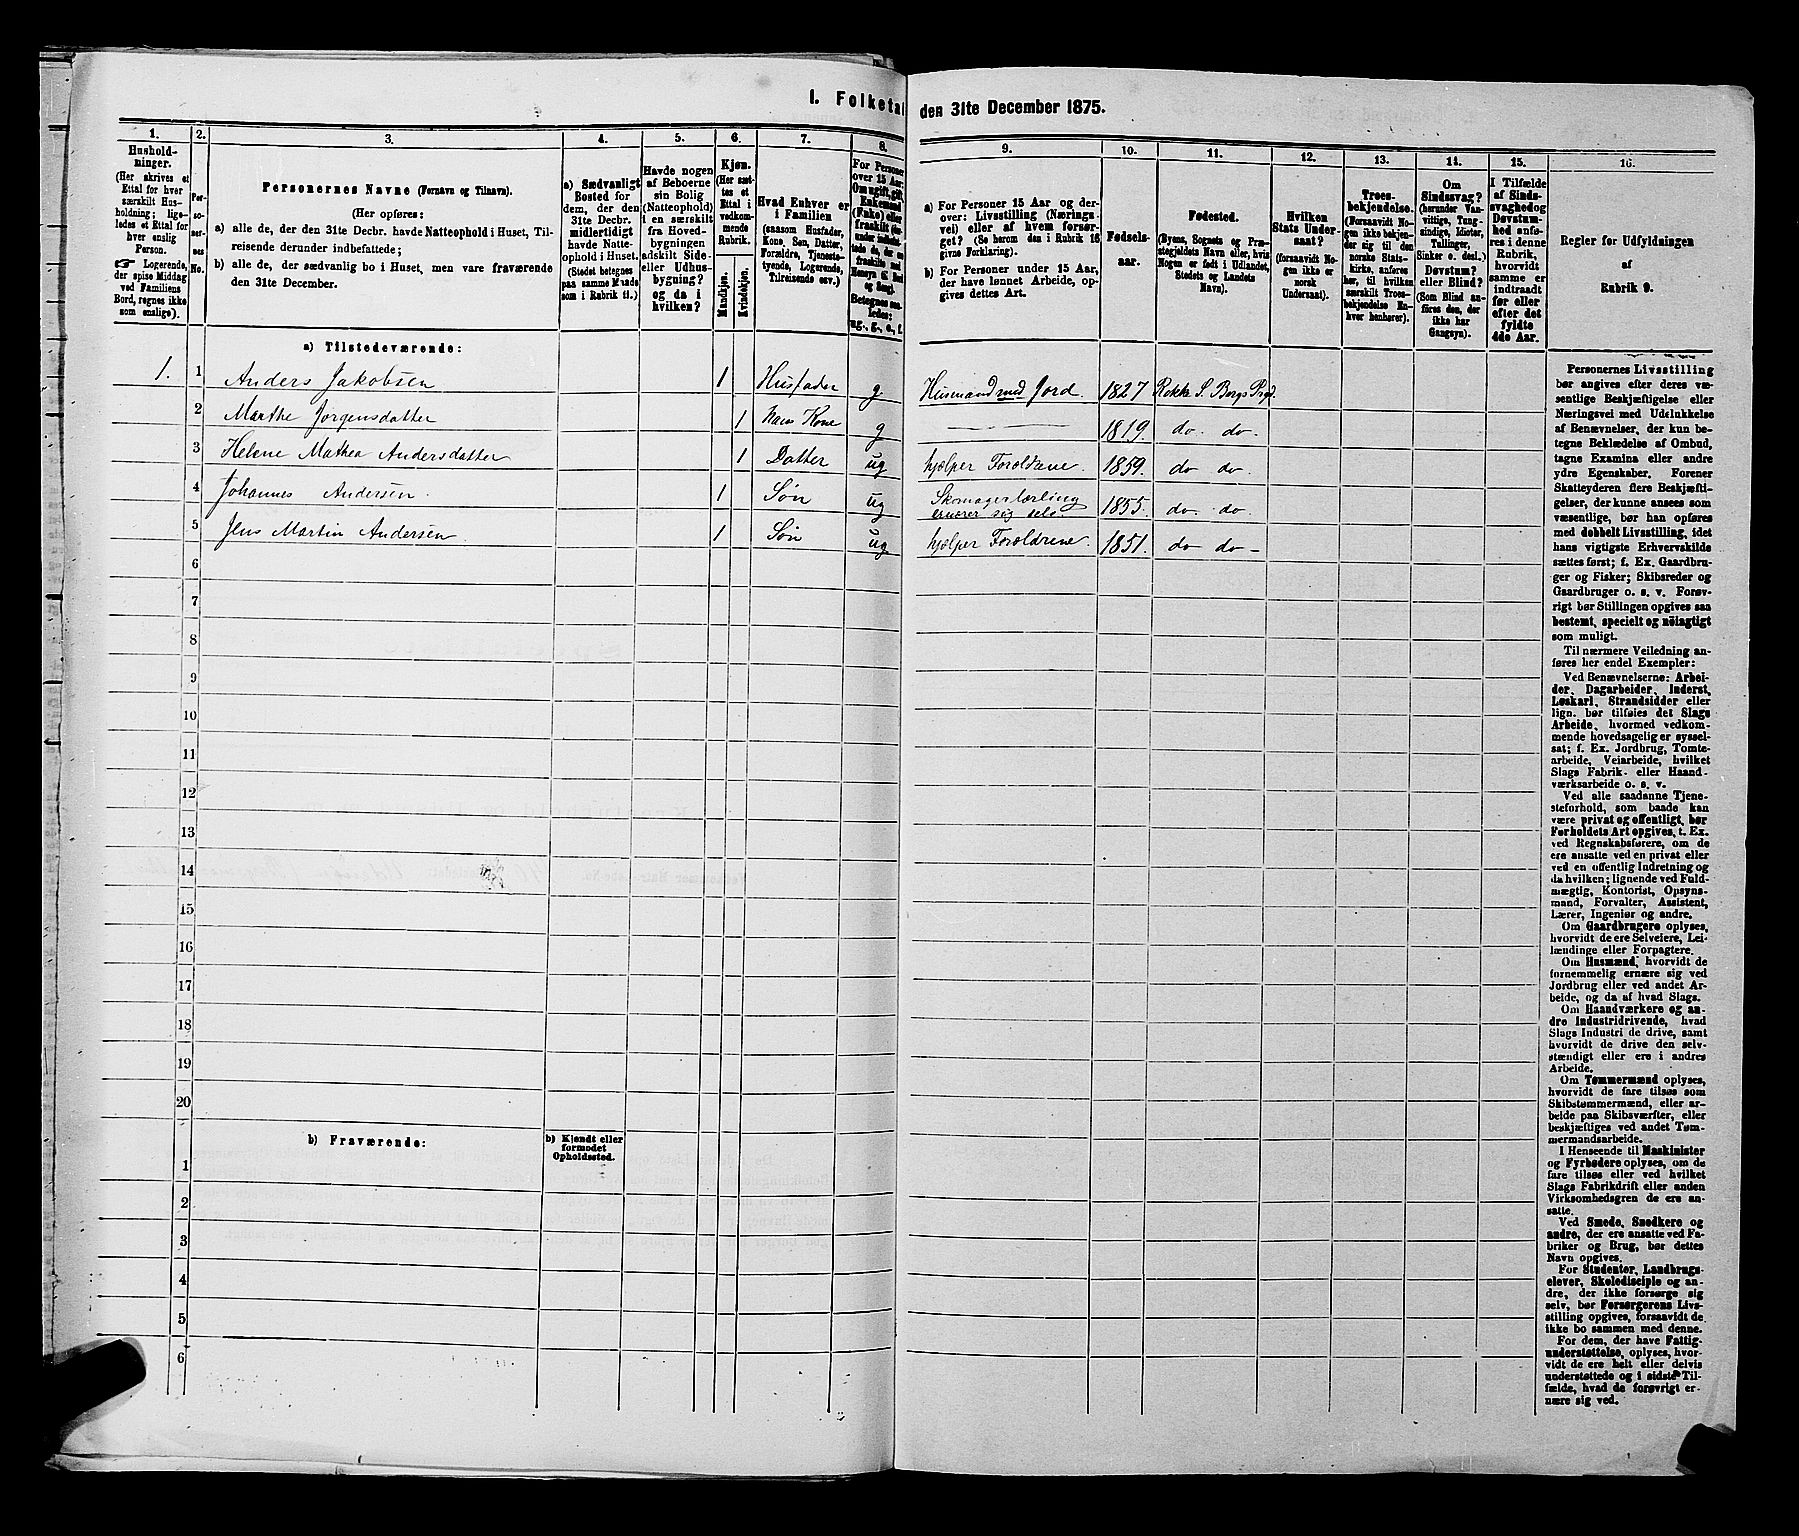 I. Folketal den 31te December 1875.
1.
2.
3.
4.
5.
6.
7.
8.
9.
10.
11.
12.
13.
14.
15.
16.
Hushold-
ninger.
(Her skrives et
Ettal for hver
særskilt Hus-
holdning; lige-
ledes et Ettal for
hver enslig
Person.
☞ Logerende,
der spise Middag
ved Familiens
Bord, regnes ikke
som enslige).
Per-
so-
ner-
nes
No.
Personernes Navne (Fornavn og Tilnavn).
(Her opføres:
a) alle de, der den 31te Decbr. havde Natteophold i Huset, Til-
reisende derunder indbefattede;
b) alle de, der sædvanlig bo i Huset, men vare fraværende
den 31te December.
a) Sædvanligt
Bosted for
dem, der den
31te Decbr.
midlertidigt
havde Natte-
ophold i Huset.
(Stedet betegnes
paa samme Maade
som i Rubrik 11.)
Havde nogen
af Beboerne
sin Bolig
(Natteophold)
i en særskilt
fra Hoved-
bygningen
adskilt Side-
eller Udhus-
bygning?
og da i
hvilken?
Kjøn.
(Her sæt-
tes et
Ettal i
vedkom-
mende
Rubrik.
Mandkjøn.
Kvindekjøn.
Hvad Enhver er
i Familien
(saasom Husfader,
Kone, Søn, Datter,
Forældre, Tjeneste-
tyende, Logerende,
Tilreisende osv.)
For Personer
over 15 Aar:
Om ugift, gift,
Enkemand
(Enke) eller
fraskilt
Betegnes saa-
ledes:
ug., g., e., f.
a) For Personer 15 Aar og der-
over: Livsstilling (Nærings-
vei) eller af hvem forsør-
get? (Se herom den i Rubrik 16
givne Forklaring).
b) For Personer under 15 Aar,
der have lønnet Arbeide, op-
gives dettes Art.
Fødsels-
aar.
Fødested.
(Byens, Sognets og Præ-
stegjeldets Navn eller, hvis
Nogen er født i Udlandet,
Stedets og Landets
Navn).
Hvilken
Stats Under-
saat?
(forsaavidt No-
gen ikke er
norsk
Undersaat).
Troes-
bekjendelse.
(Forsaavidt No-
gen ikke bekjen-
der sig til den
norske Stats-
kirke, anføres
her, til hvilken
særskilt Troes-
bekjendelse En-
hver henhører).
Om
Sindssvag?
(herunder Van-
vittige, Tung-
sindige, Idioter,
Tullinger,
Sinker o. desl.)
Døvstum?
eller Blind?
(Som Blind an-
føres den, der
ikke har
Gangsyn).
I Tilfælde
af Sinds-
svaghed og
Døvstum-
hed anfø-
res i denne
Rubrik,
hvorvidt
samme er
indtraadt
før eller
efter det
fyldte
4de Aar.
Regler for Udfyldningen
af
Rubrik 9.
a) Tilstedeværende:
1. 1 Anders Jakobsen 1 Husfader g Husmand med Jord. 1827 Rokke S. Bergs Prgj.
2 Marthe Jorgensdatter 1 Hans Kone g — 1819. do. do.
3 Helene Mathea Andersdatter 1 Datter ug hjælper Forældrene. 1859. do do.
4 Johannes Andersen. 1 Søn ug Skomagerlærling ernærer sig selv. 1855. do. do.
5 Jens Martin Andersen. 1 Søn ug hjælper Forældrene. 1851. do do –
6
7
8
9
10
11
12
13
14
15
16
17
18
19
20
b) Fraværende:
b) Kjendt eller
formodet
Opholdssted.
1
2
3
4
5
6
Personernes Livsstilling
bør angives efter deres væ-
sentlige Beskjæftigelse eller
Næringsvei med Udelukkelse
af Benævnelser, der kun be-
tegne Beklædelse af Ombud,
tagne Examina eller andre
ydre Egenskaber. Forener
Skatteyderen flere Beskjæfti-
gelser, der kunne ansees som
væsentlige, bør han opføres
med dobbelt Livsstilling, idet
hans vigtigste Erhvervskilde
sættes først; f. Ex. Gaardbru-
ger og Fisker; Skibsreder og
Gaardbruger o. s. v. Forøv-
rigt bør Stillingen opgives saa
bestemt, specielt og nöiagtigt
som muligt.
Til nærmere Veiledning an-
føres her endel Exempler:
Ved Benævnelserne: Arbei-
der, Dagarbeider, Inderst,
Løskarl, Strandsidder eller
lign. bør tilføies det Slags
Arbeide, hvormed vedkom-
mende hovedsagelig er syssel-
sat; f. Ex. Jordbrug, Tomte-
arbeide, Veiarbeide, hvilket
Slags Fabrik- eller Haand-
værksarbeide o. s. v.
Ved alle saadanne Tjene-
steforhold, som baade kan
være privat og offentligt, bør
Forholdets Art opgives, t. Ex.
ved Regnskabsførere, om de
ere ansatte ved en privat eller
ved en offentlig Indretning og
da hvilken; lignende ved Fuld-
mægtig, Kontorist, Opsyns-
mand, Forvalter, Assistent,
Lærer, Ingeniør og andre.
Om Gaardbrugere oplyses,
hvorvidt de ere Selveiere, Lei-
lændinge eller Forpagtere.
Om Husmænd, hvorvidt de
fornemmelig ernære sig ved
Jordbrug eller ved andet Ar-
beide, og da af hvad Slags.
Om Haandværkere og an-
dre Industridrivende, hvad
Slags Industri de drive, samt
hvorvidt de drive den selv-
stændigt eller ere i andres
Arbeide.
Om Tømmermænd oplyses,
hvorvidt de fare tilsøs som
Skibstømmermænd, eller ar-
beide paa Skibsværfter, eller
beskjæftiges ved andet Tøm-
mermandsarbeide.
I Henseende til Maskinister
og Fyrbødere oplyses, om de
fare tilsøs eller ved hvilket
Slags Fabrikdrift eller anden
Virksomhedsgren de ere an-
satte.
Ved Smede, Snedkere og
andre, der ere ansatte ved Fa-
briker og Brug, bør dettes
Navn opgives.
For Studenter, Landbrugs-
elever, Skoledisciple og an-
dre, der ikke forsørge sig
selv, bør Forsørgerens Livs-
stilling opgives, forsaavidt de
ikke bo sammen med denne.
For dem, der have Fattig-
understøttelse, oplyses, hvor-
vidt de ere helt eller delvis
understøttede og i sidste Til-
fælde, hvad de forøvrigt er-
nære sig ved.